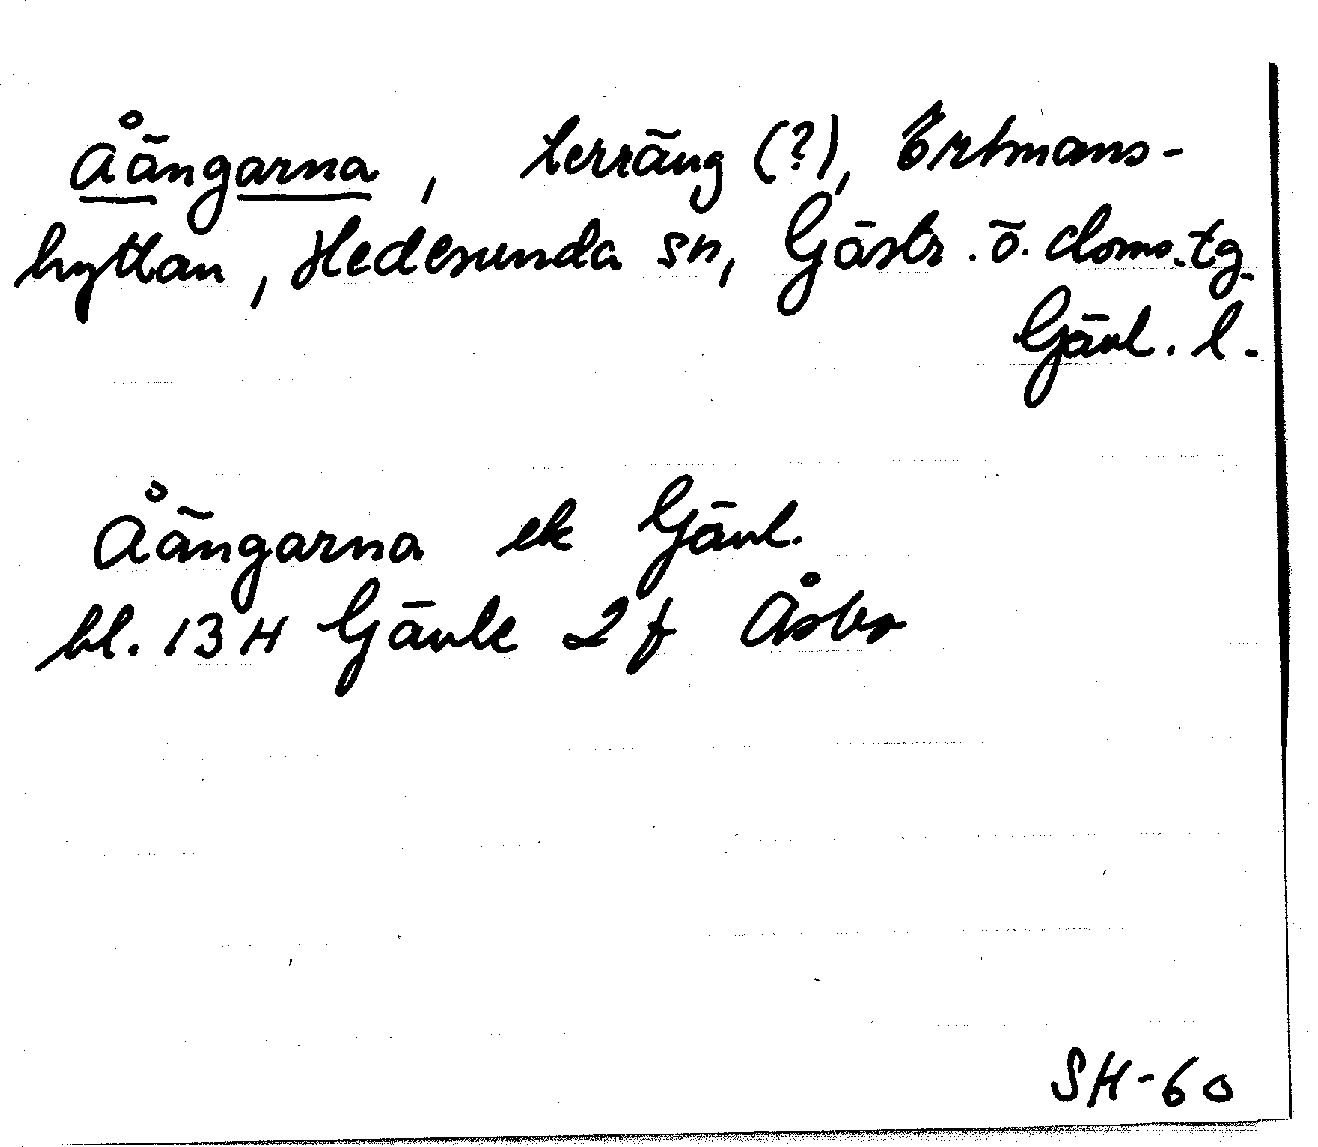 Åängarna, terräng (?), Ertmans-
hyttan, Hedesunda sn, Gästr. ö. doms.tg.
Gävl. l.
Åängarna ek Gävl.
bl. 13H Gävle 2f Åsbo
SH-60